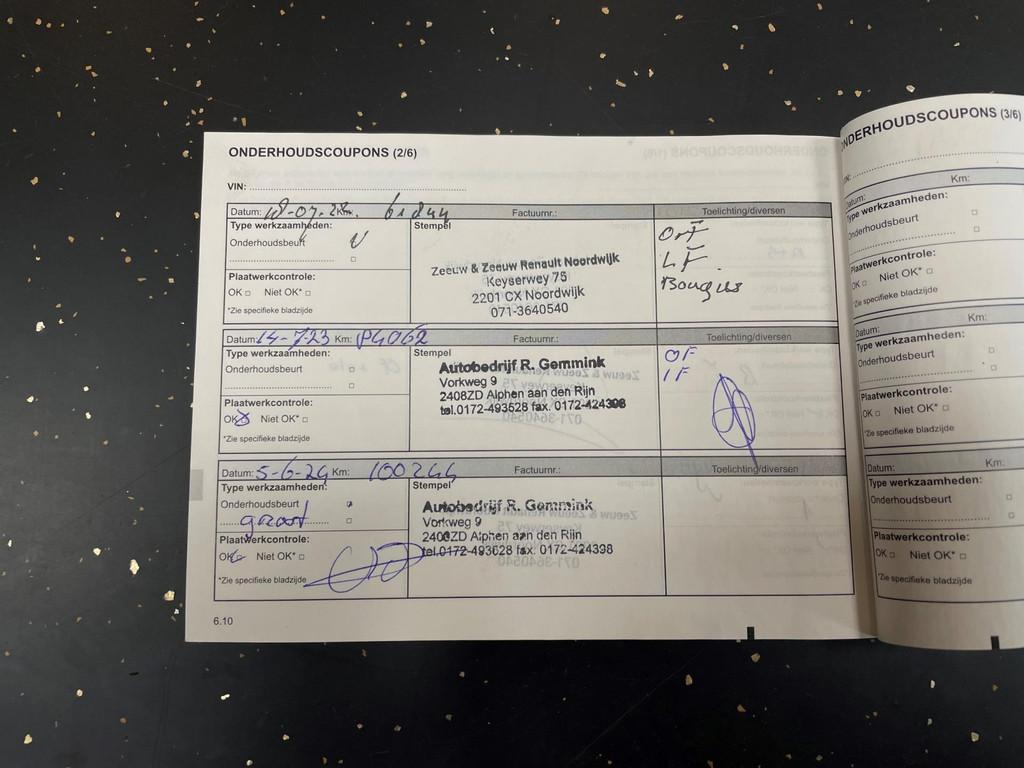 ONDERHOUDSCOUPONS (2/6)
VIN:
Datum: Km: Factuurnr.: Toelichting/diversen
Type werkzaamheden:
Onderhoudsbeurt V
Plaatwerkcontrole:
OK Niet OK*
*Zie specifieke bladzijde
Stempel
Zeeuw & Zeeuw Renault Noordwijk
Keyserwey 75
2201 CX Noordwijk
071-3640540
LF.
Bougies
Datum: 14-7-23 Km: Factuurnr.: Toelichting/diversen
Type werkzaamheden:
Onderhoudsbeurt
Plaatwerkcontrole:
OK Niet OK*
*Zie specifieke bladzijde
Stempel
Autobedrijf R. Gemmink
Vorkweg 9
2408ZD Alphen aan den Rijn
tel.0172-493628 fax. 0172-424398
OF
IF
Datum: 5-6-24 Km: 100244 Factuurnr.: Toelichting/diversen
Type werkzaamheden:
Onderhoudsbeurt
groot
Plaatwerkcontrole:
OK Niet OK*
*Zie specifieke bladzijde
Stempel
Autobedrijf R. Gemmink
Vorkweg 9
2408ZD Alphen aan den Rijn
tel.0172-493628 fax. 0172-424398
6.10
ONDERHOUDSCOUPONS (3/6)
VIN:
Datum: Km:
Type werkzaamheden:
Onderhoudsbeurt
Plaatwerkcontrole:
OK Niet OK*
*Zie specifieke bladzijde
Datum: Km:
Type werkzaamheden:
Onderhoudsbeurt
Plaatwerkcontrole:
OK Niet OK*
*Zie specifieke bladzijde
Datum: Km:
Type werkzaamheden:
Onderhoudsbeurt
Plaatwerkcontrole:
OK Niet OK*
*Zie specifieke bladzijde